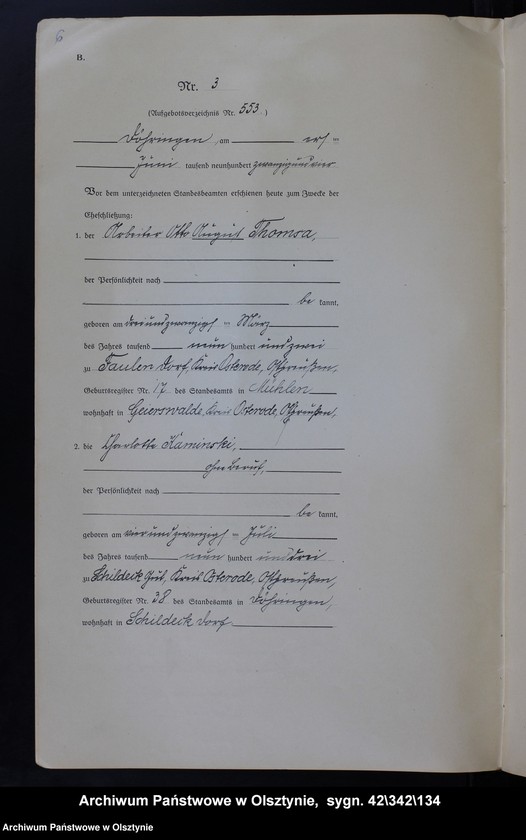 6
B.
Nr. 3
(Aufgebotsverzeichnis Nr. 553)
Döhringen, am ersten
Juni tausend neunhundert zwanzigundvier
Vor dem unterzeichneten Standesbeamten erschienen heute zum Zwecke der
Eheschließung:
1. der Arbeiter Otto August Thomsa,
der Persönlichkeit nach
be kannt,
geboren am dreiundzwanzigsten März
des Jahres tausend neun hundert undzwei
zu Faulen Dorf, Kreis Osterode, Ostpreußen,
Geburtsregister Nr. 17 des Standesamts in Mühlen
wohnhaft in Geierswalde, Kreis Osterode, Ostpreußen,
2. die Charlotte Kaminski,
ohne Beruf,
der Persönlichkeit nach
be kannt,
geboren am vierundzwanzigsten Juli
des Jahres tausend neun hundert unddrei
zu Schildeck Gut, Kreis Osterode, Ostpreußen,
Geburtsregister Nr. 38 des Standesamts in Döhringen,
wohnhaft in Schildeck Dorf.
Archiwum Państwowe w Olsztynie, sygn. 42\342\134
Archiwum Państwowe w Olsztynie